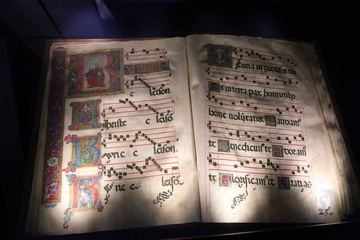 leison
Christe e leison
Kyrie e leison.
Kyrie e leison
in excelsis
Et in terra pax hominibus
bone voluntatis. Laudam
te Benedicimus te Adoram
te Glorificamus te Gratias